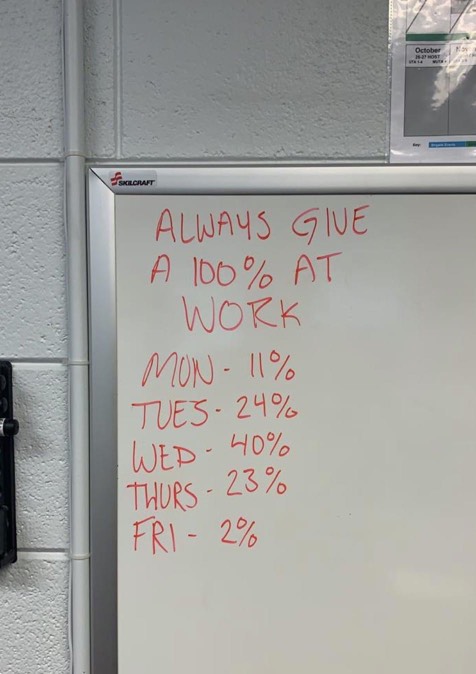 October
SKILCRAFT
ALWAYS GIVE
A 100% AT
WORK
MON - 11%
TUES - 24%
WED - 40%
THURS - 23%
FRI - 2%